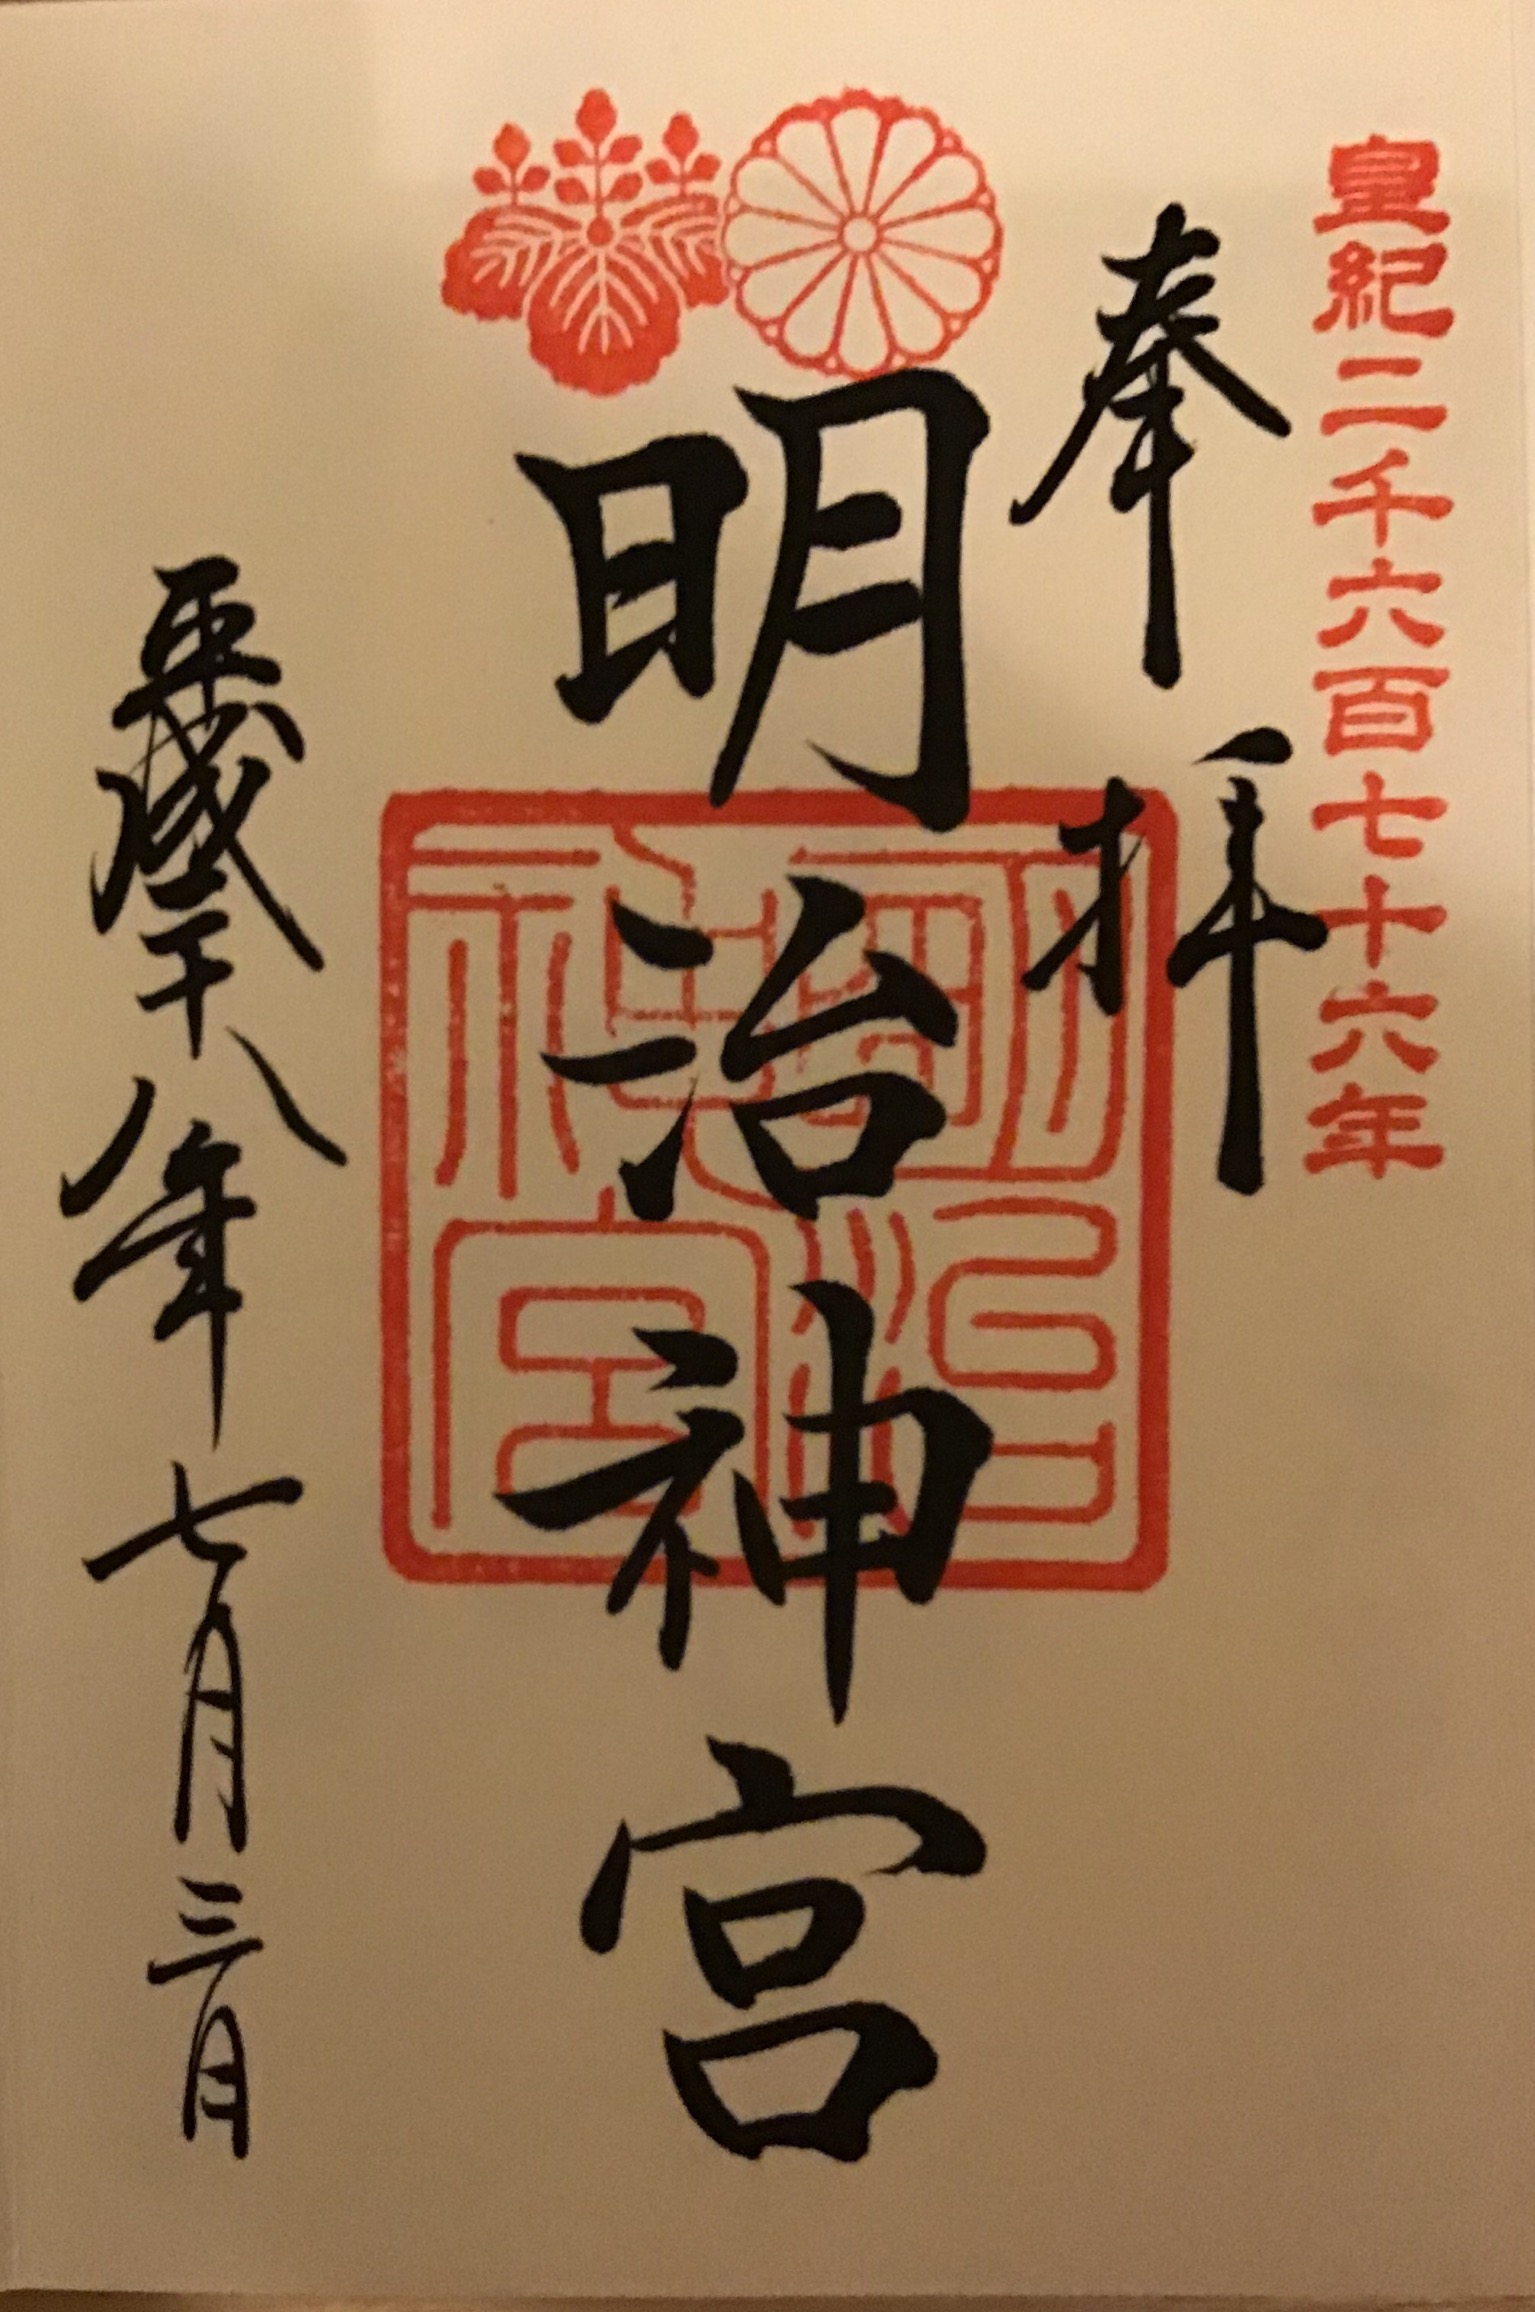 皇紀二千六百七十六年
奉拝
明治神宮
明治神宮
平成廿八年七月三日